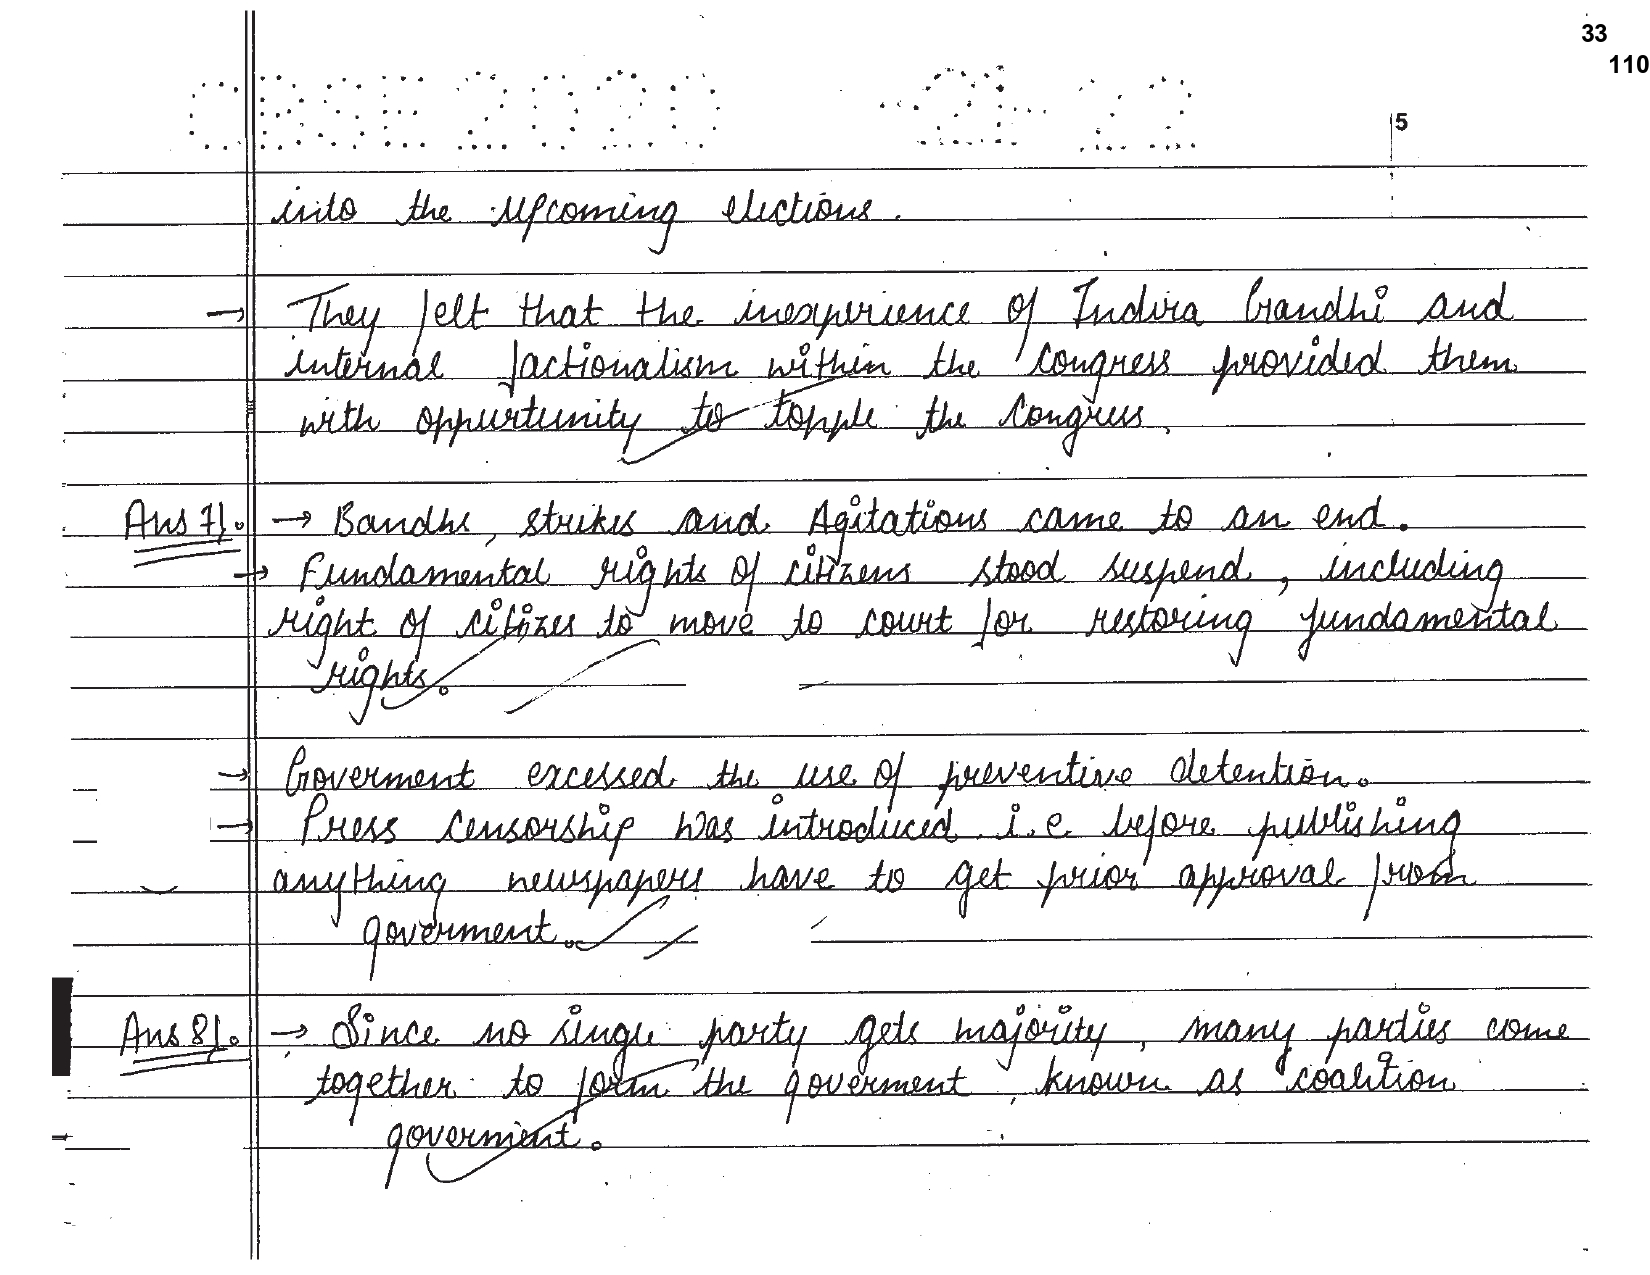 33
110
CBSE 2020 21 22
5
into the upcoming elections.
→ They felt that the inexperience of Indira Gandhi and
internal factionalism within the Congress provided them
with oppurtunity to topple the Congress.
Ans 7). → Bandhs, strikes and Agitations came to an end.
→ Fundamental rights of citizens stood suspend, including
right of citizes to move to court for restoring fundamental
rights.
→ Goverment excessed the use of preventive detention.
→ Press censorship was introduced i.e. before publishing
anything newspapers have to get prior approval from
goverment.
Ans 8). → Since no single party gets majority, many parties come
together to form the goverment, known as coalition
goverment.